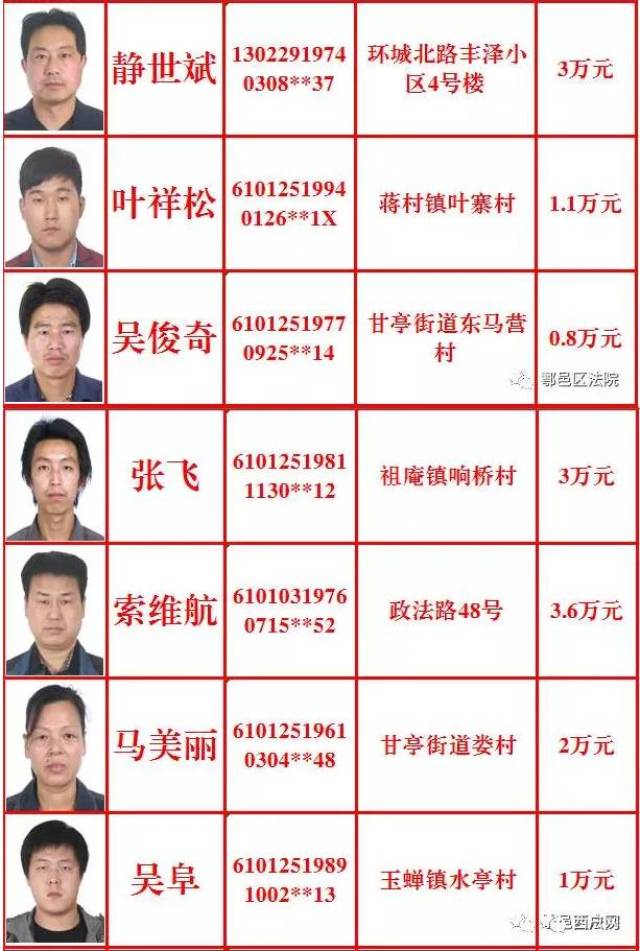 静世斌
1302291974
0308**37
环城北路丰泽小
区4号楼
3万元
叶祥松
6101251994
0126**1X
蒋村镇叶寨村
1.1万元
吴俊奇
6101251977
0925**14
甘亭街道东马营
村
0.8万元
鄠邑区法院
张飞
6101251981
1130**12
祖庵镇响桥村
3万元
索维航
6101031976
0715**52
政法路48号
3.6万元
马美丽
6101251961
0304**48
甘亭街道娄村
2万元
吴阜
6101251989
1002**13
玉蝉镇水亭村
1万元